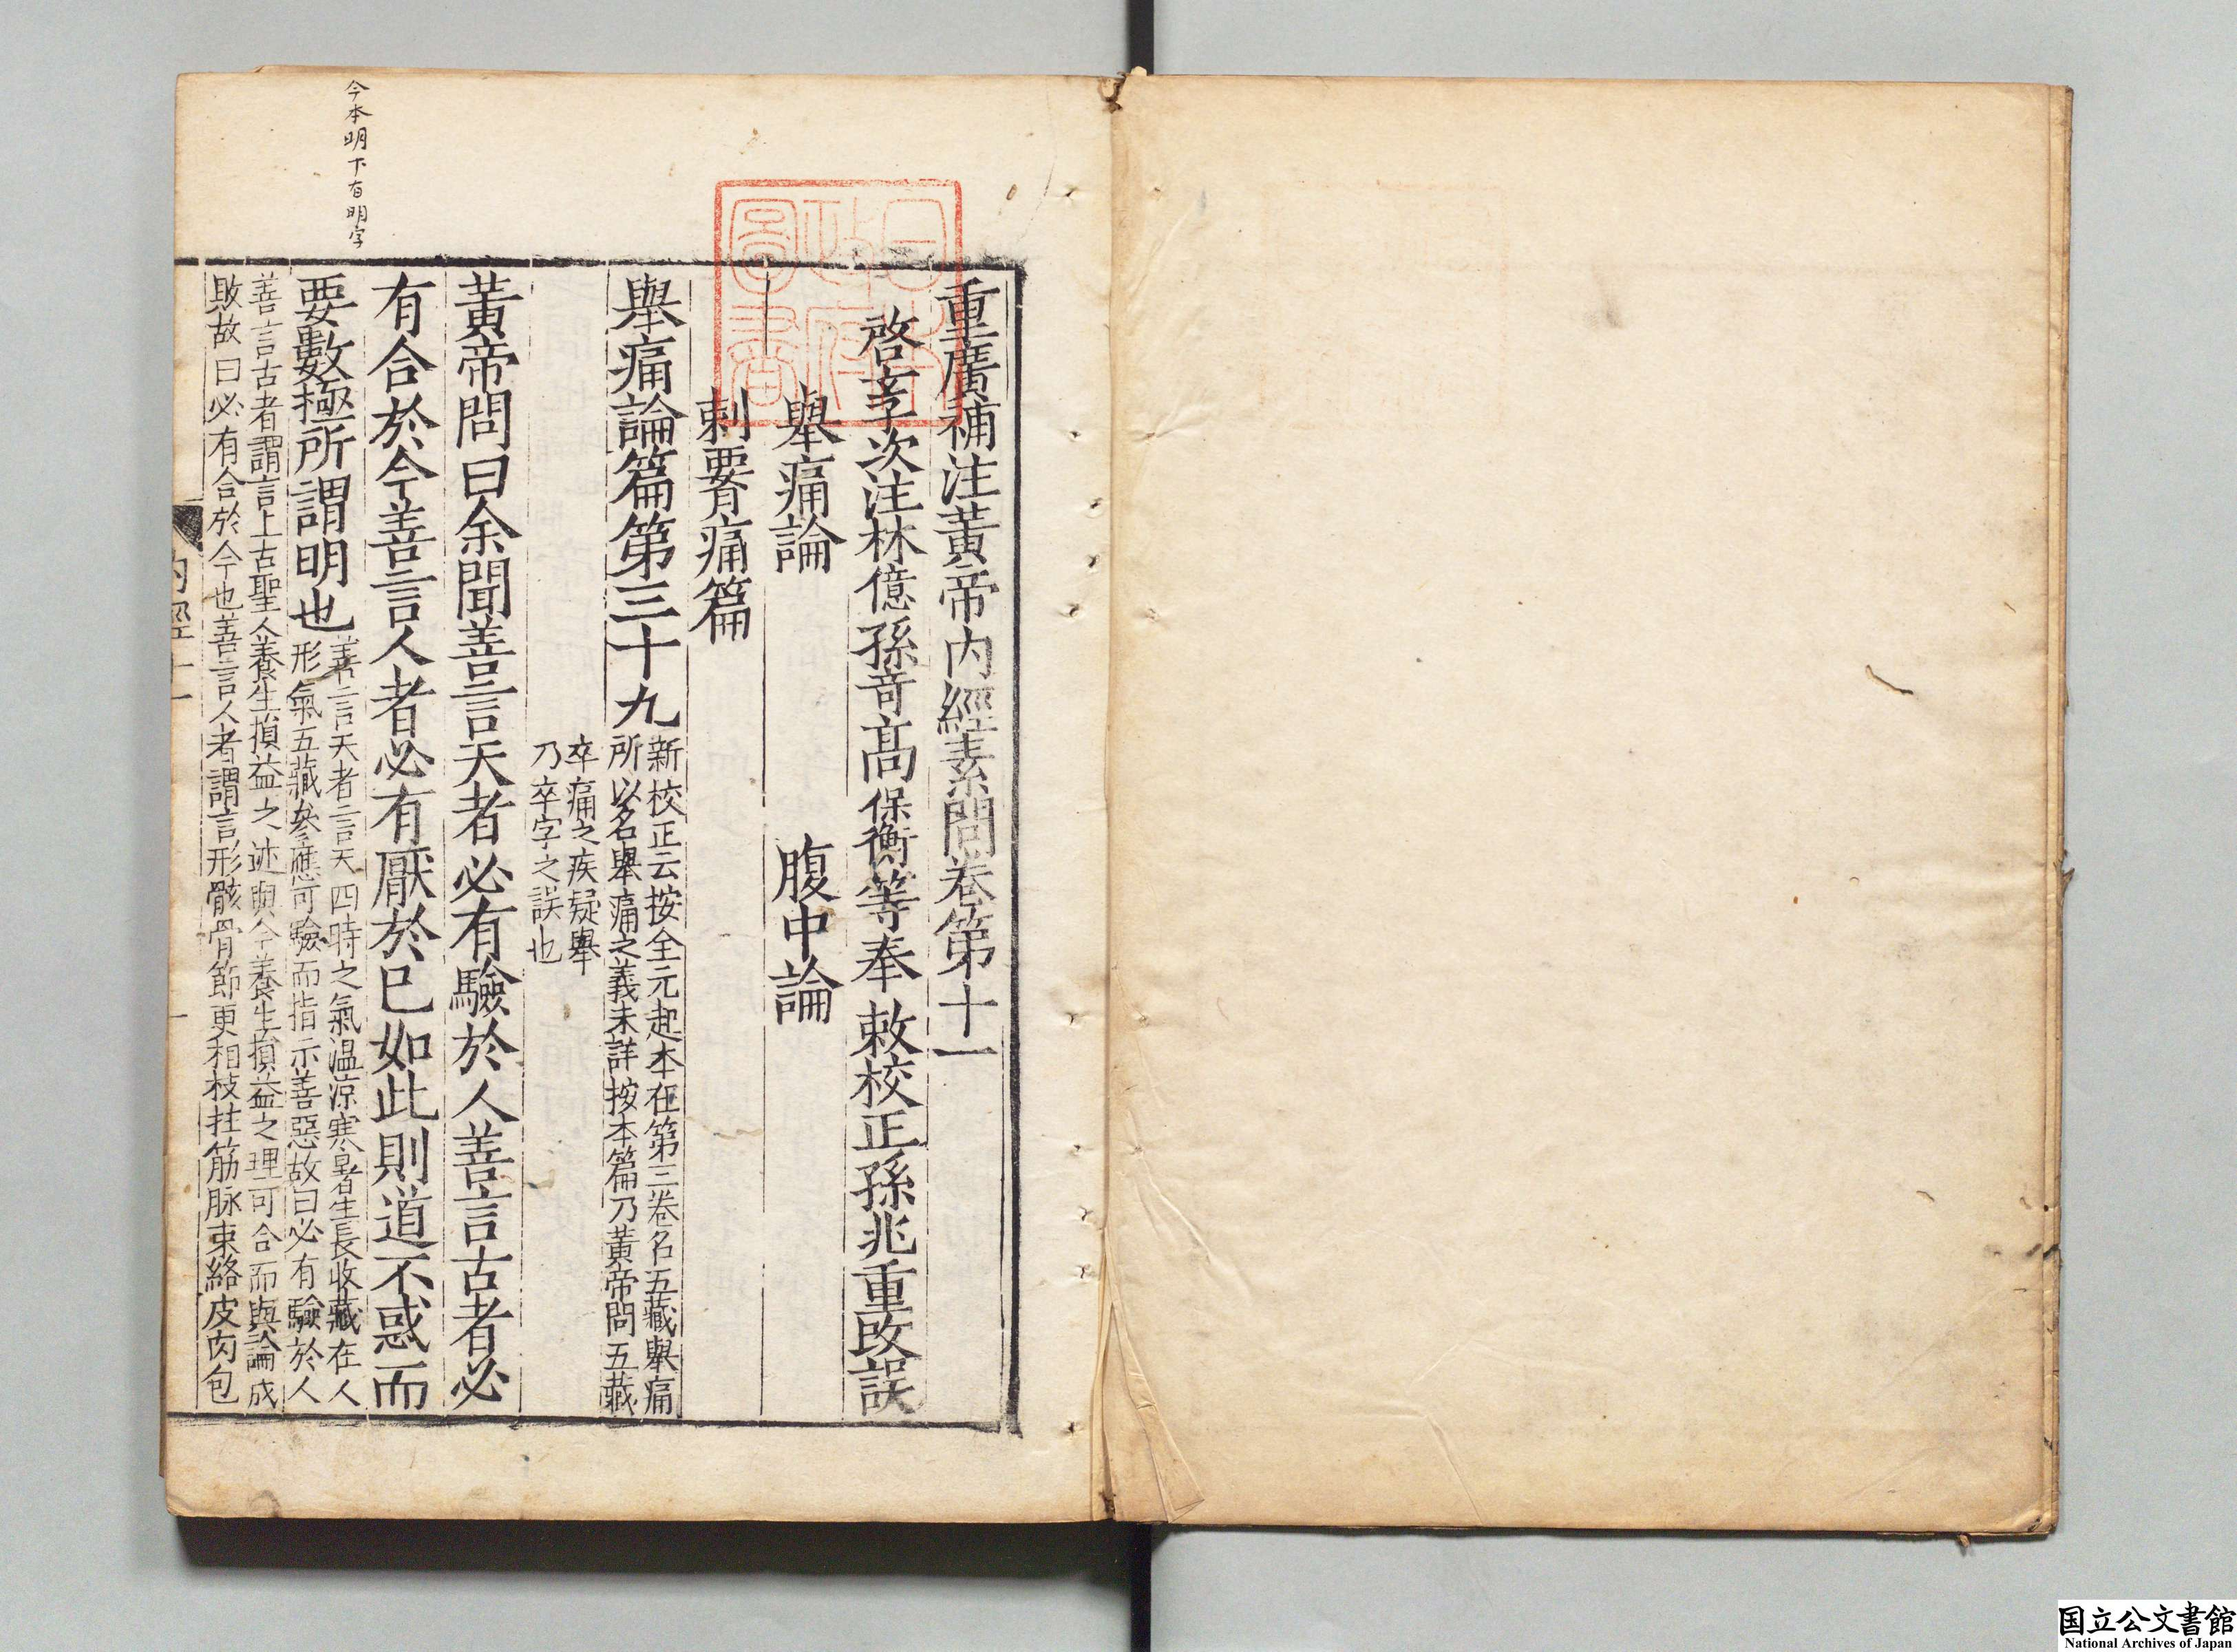 今本明下有明字
重廣補注黃帝内經素問卷第十一
啓玄子次注林億孫竒高保衡等奉敕校正孫兆重改誤
舉痛論
腹中論
刺要痛篇
舉痛論篇第三十九
新校正云按全元起本在第三卷名五藏舉痛
所以名舉痛之義未詳按本篇乃黃帝問五藏
卒痛之疾疑舉
乃卒字之誤也
黃帝問曰余聞善言天者必有驗於人善言古者必
有合於今善言人者必有厭於已如此則道不惑而
要數極所謂明也
善言天者言天四時之氣温涼寒暑生長收藏在人
形氣五藏參應可驗而指示善惡故曰必有驗於人
善言古者謂言上古聖人養生損益之迹與今養生損益之理可合而與論成
敗故曰必有合於今也善言人者謂言形骸骨節更相枝拄筋脉束絡皮肉包
内經十一
一
日本政府圖書
国立公文書館
National Archives of Japan